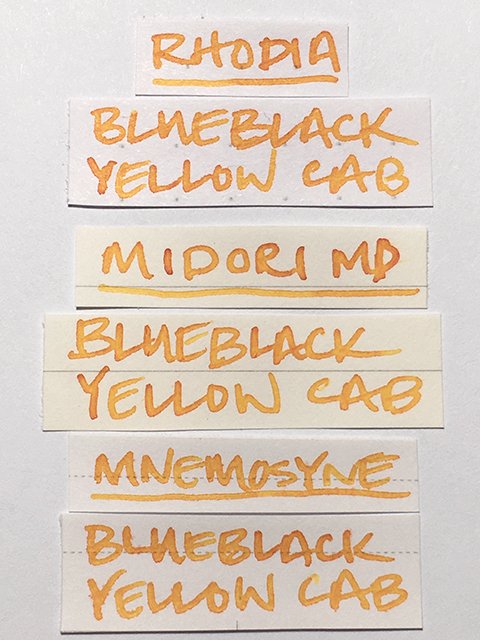 RHODIA
BLUEBLACK
YELLOW CAB
MIDORI MD
BLUEBLACK
YELLOW CAB
MNEMOSYNE
BLUEBLACK
YELLOW CAB